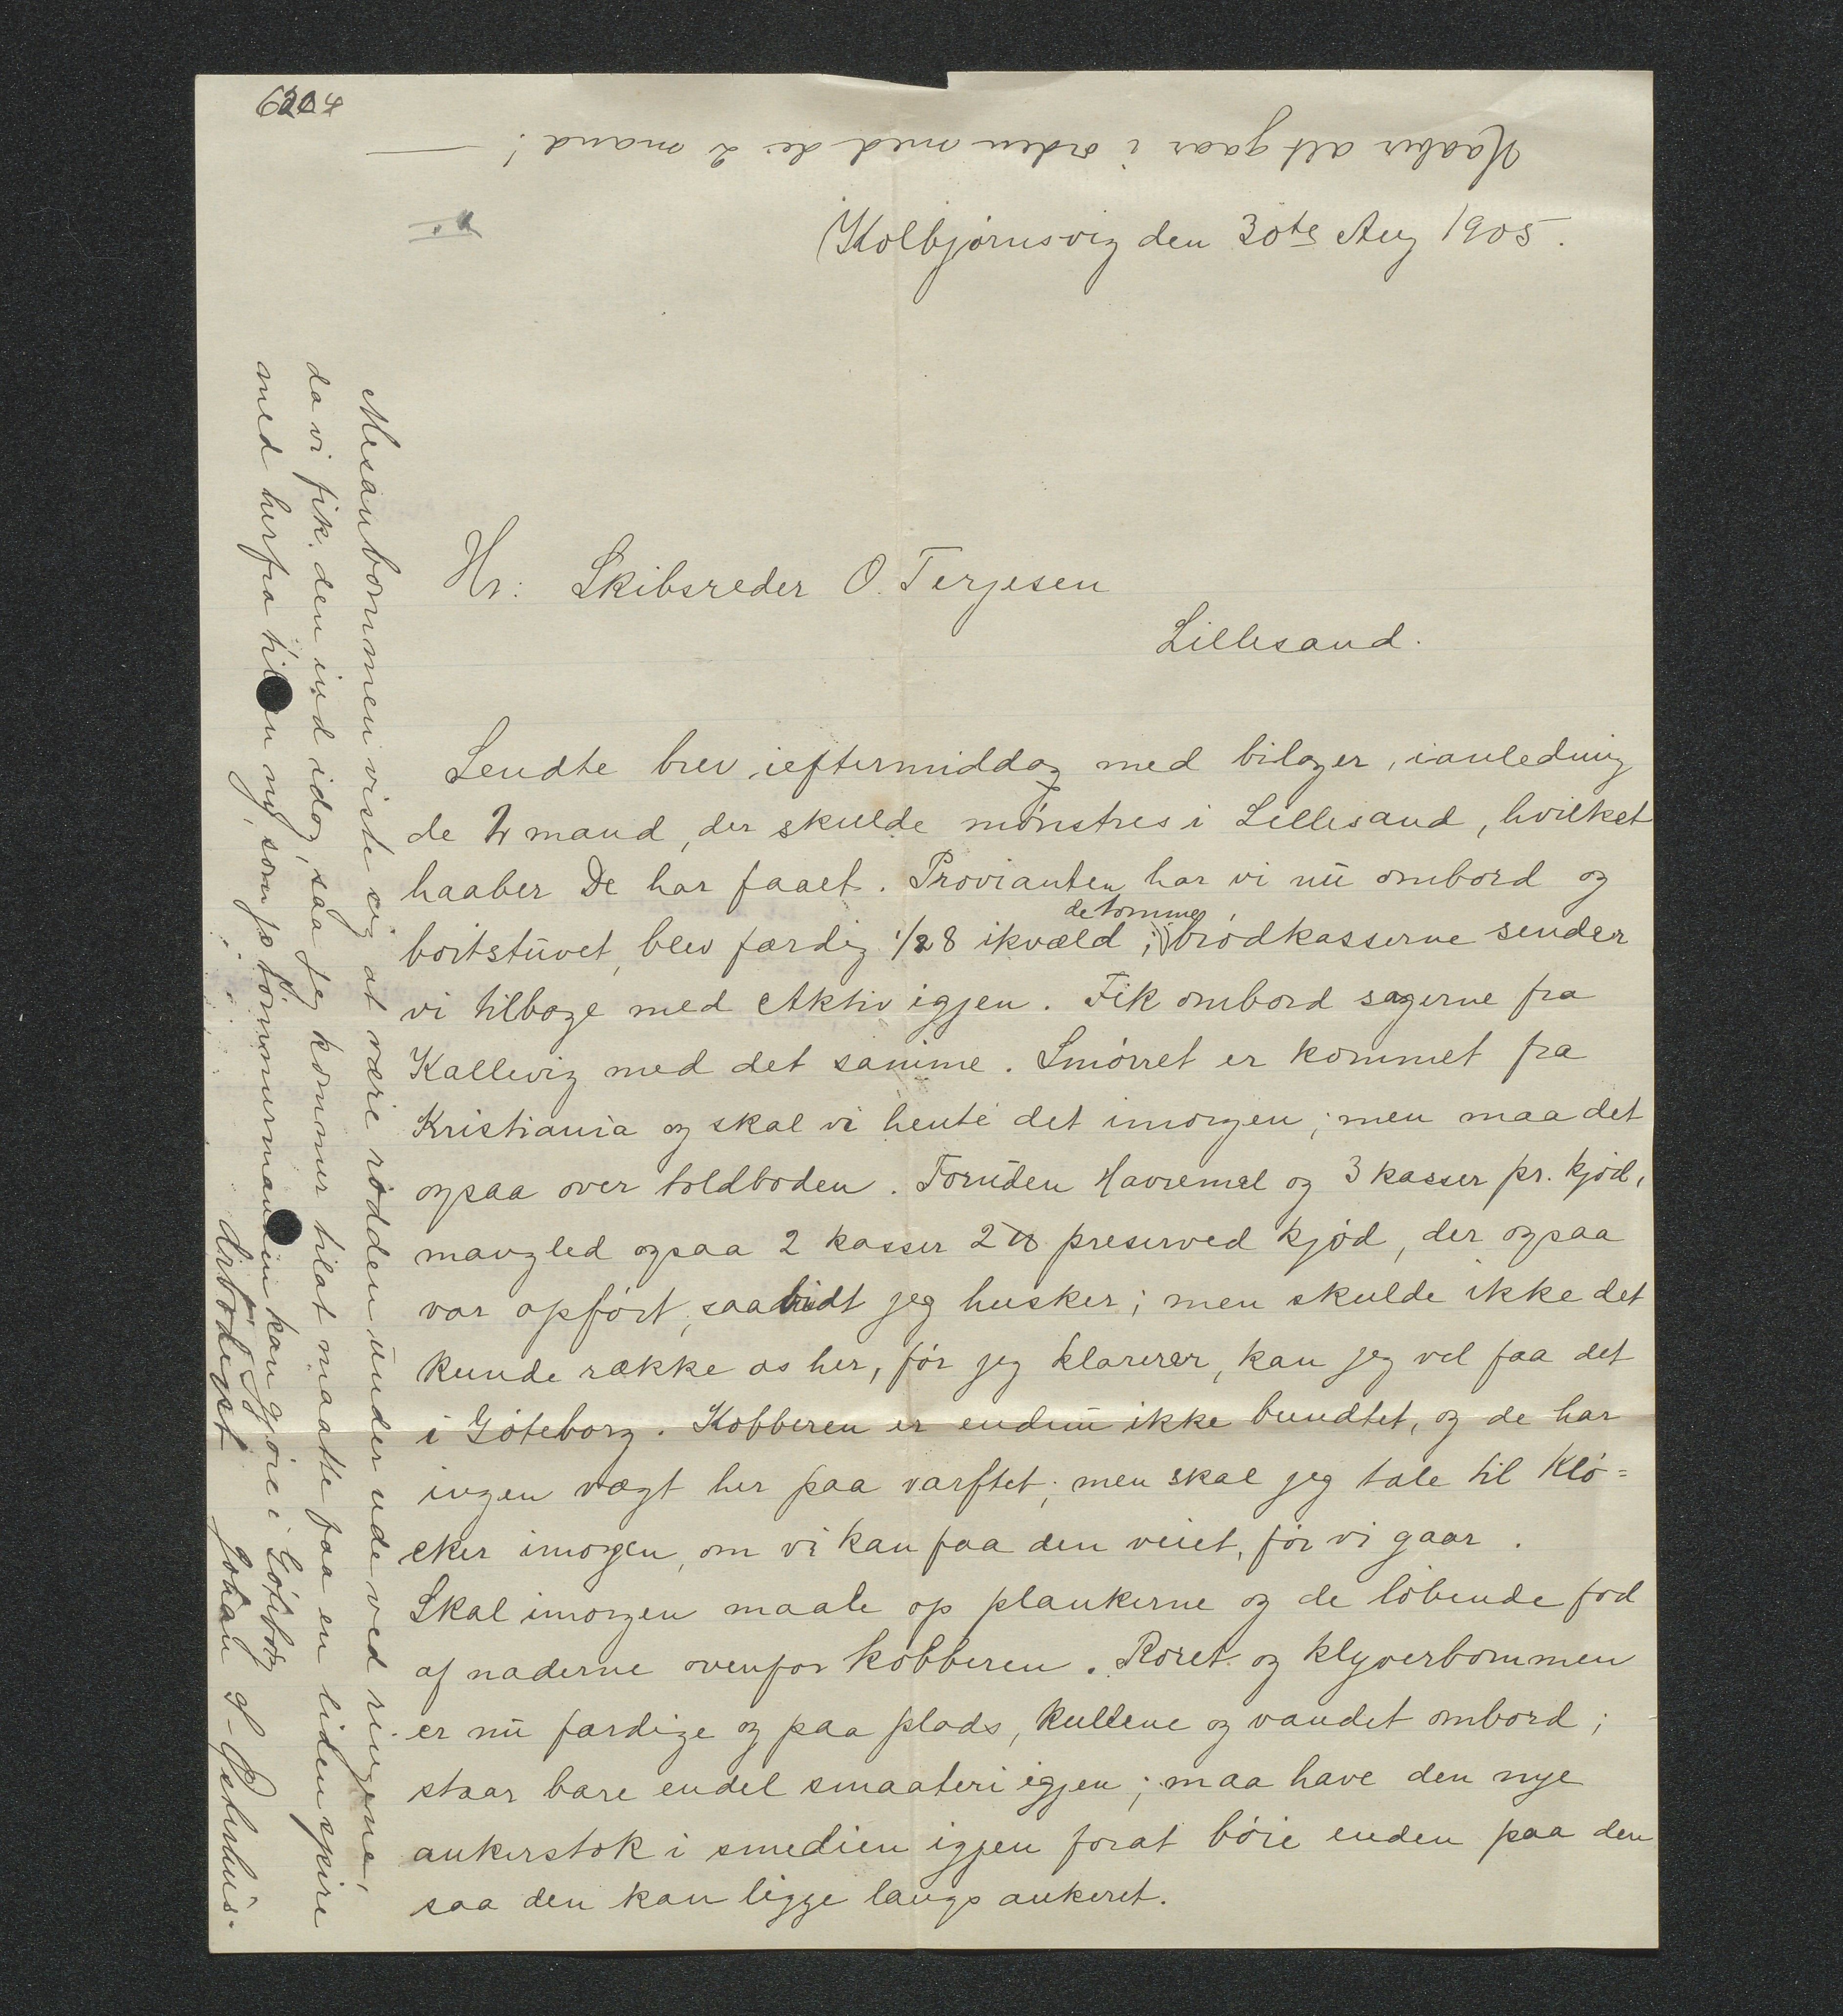 Kolbjørnsvig den 30te Aug 1905.
Hr: Skibsreder O. Terjesen
Lillesand.
Sendte brev ieftermiddag med bilager, ianledning
de 2 mand, der skulde mønstres i Lillesand, hvilket
haaber De har faaet. Provianten har vi nu ombord og
bortstuvet, blev færdig 1/2 8 ikvæld; de tomme brødkasserne sender
vi tilbage med Aktiv igjen. Fik ombord sagerne fra
Kallevig med det samme. Smørret er kommet fra
Kristiania og skal vi hente det imorgen; men maa det
ogsaa over toldboden. Foruden Havremel og 3 kasser pr. kjød,
mangled ogsaa 2 kasser 2 ℔ preserved kjød, der ogsaa
var opført, saavidt jeg husker; men skulde ikke det
kunde række os her, før jeg klarerer, kan jeg vel faa det
i Gøteborg. Kobberen er endnu ikke bundtet, og de har
ingen vægt her paa varftet; men skal jeg tale til Klø=
cker imorgen, om vi kan faa den veiet, før vi gaar.
Skal imorgen maale op plankerne og de løbende fod
af naderne ovenfor kobberen. Roret og klyverbommen
er nu færdige og paa plads, kullene og vandet ombord;
staar bare endel smaateri igjen; maa have den nye
ankerstok i smedien igjen forat bøie enden paa den
saa den kan ligge langs ankeret.
Mesanbommen viste sig at være rødden under ude ved ringene,
da vi fik den ind idag, saa jeg kommer tilat maatte faa en liden spire
med herfra til en ny, som tømmermanden kan gjøre i Gøteborg
Ærbødigst Johan G. Østerhus.
Haaber alt gaar i orden med de 2 mand!